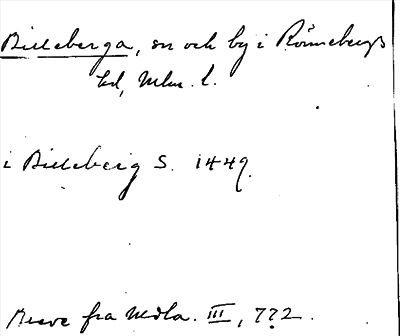 Billeberga, sn och by i Rönnebergs
hd, Mlm. l.
i Billeberg S. 1449.
Breve fra Mdla. III, 772.